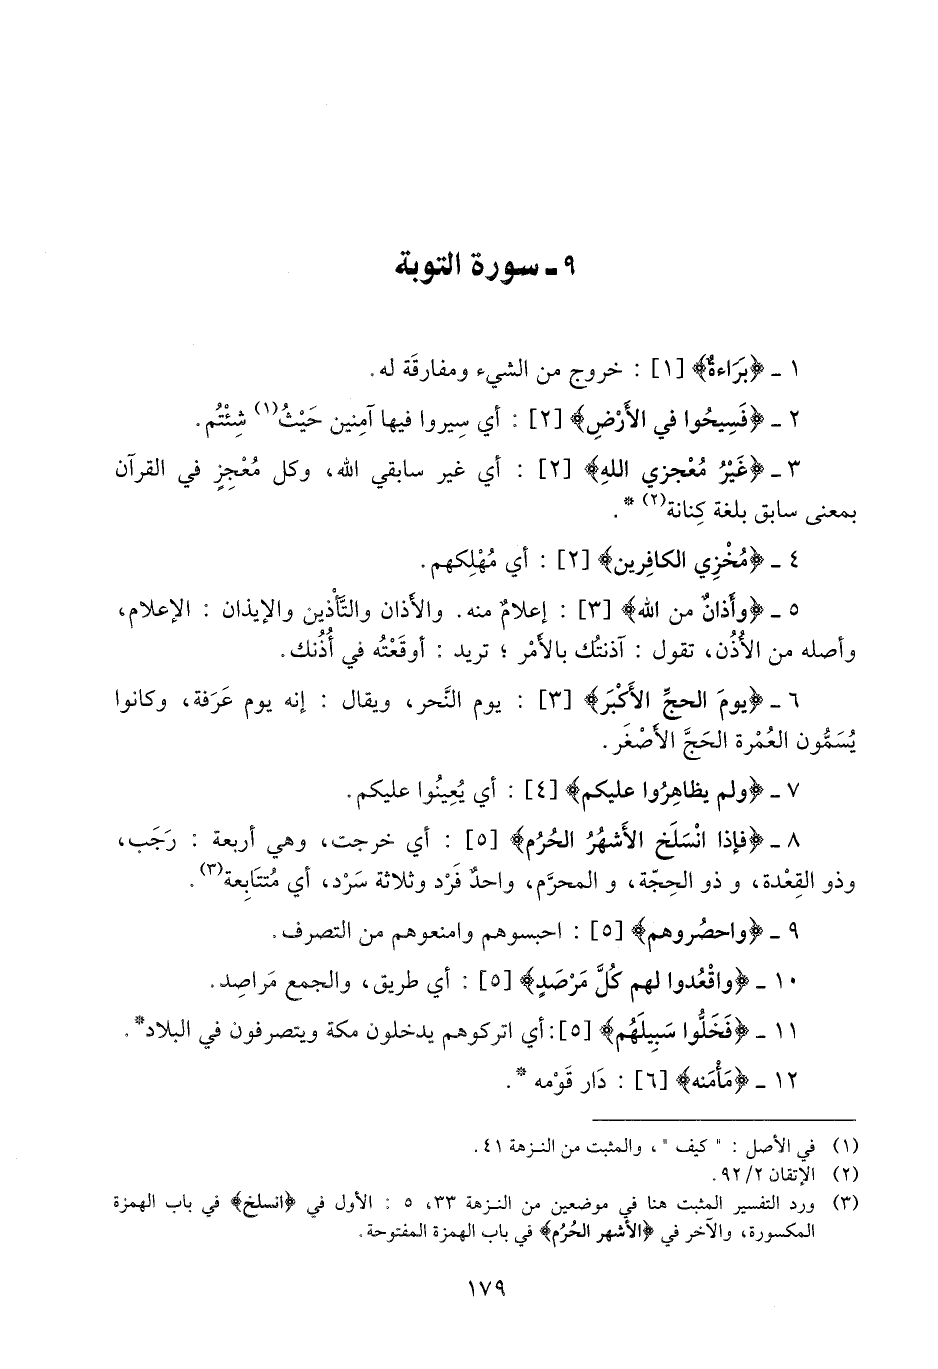 ٩ ـ سورة التوبة
١ ـ ﴿بَرَاءةٌ﴾ [١] : خروج من الشيء ومفارقَة له.
٢ ـ ﴿فَسِيحُوا في الأَرْضِ﴾ [٢] : أي سِيروا فيها آمنِين حَيْثُ(١) شِئْتُم.
٣ ـ ﴿غَيْرُ مُعْجزي اللهِ﴾ [٢] : أي غير سابقي الله، وكل مُعْجِزٍ في القرآن
بمعنى سابق بلغة كِنانة(٢) *.
٤ ـ ﴿مُخْزِي الكافِرين﴾ [٢] : أي مُهْلِكهم.
٥ ـ ﴿وأَذانٌ من الله﴾ [٣] : إعلامٌ منه. والأَذان والتَّأْذين والإيذان : الإعلام،
وأصله من الأُذُن، تقول : آذنتُك بالأَمْر ؛ تريد : أوقَعْتُه في أُذُنك.
٦ ـ ﴿يومَ الحجِّ الأَكْبَر﴾ [٣] : يوم النَّحر، ويقال : إنه يوم عَرَفة، وكانوا
يُسَمُّون العُمْرة الحَجَّ الأَصْغَر.
٧ ـ ﴿ولم يظاهِرُوا عليكم﴾ [٤] : أي يُعِينُوا عليكم.
٨ ـ ﴿فإذا انْسَلَخ الأَشهُرُ الحُرُم﴾ [٥] : أي خرجت، وهي أربعة : رَجَب،
وذو القِعْدة، و ذو الحِجّة، و المحرَّم، واحدٌ فَرْد وثلاثة سَرْد، أي مُتتَابِعة(٣).
٩ ـ ﴿واحصُروهم﴾ [٥] : احبسوهم وامنعوهم من التصرف.
١٠ ـ ﴿واقْعُدوا لهم كُلَّ مَرْصَدٍ﴾ [٥] : أي طريق، والجمع مَراصِد.
١١ ـ ﴿فَخَلُّوا سَبِيلَهُم﴾ [٥]: أي اتركوهم يدخلون مكة ويتصرفون في البلاد*.
١٢ ـ ﴿مَأْمَنه﴾ [٦] : دَار قَوْمه *.
(١) في الأصل : " كيف "، والمثبت من النـزهة ٤١.
(٢) الإتقان ٩٢/٢.
(٣) ورد التفسير المثبت هنا في موضعين من النـزهة ٣٣، ٥ : الأول في ﴿انسلخ﴾ في باب الهمزة
المكسورة، والآخر في ﴿الأشهر الحُرُم﴾ في باب الهمزة المفتوحة.
١٧٩